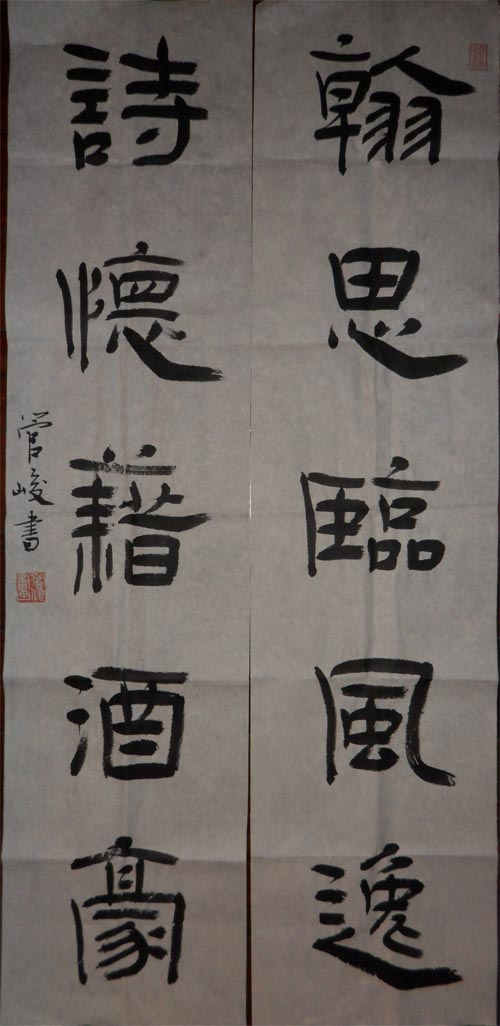 翰思臨風逸
詩懷藉酒豪
管峻書